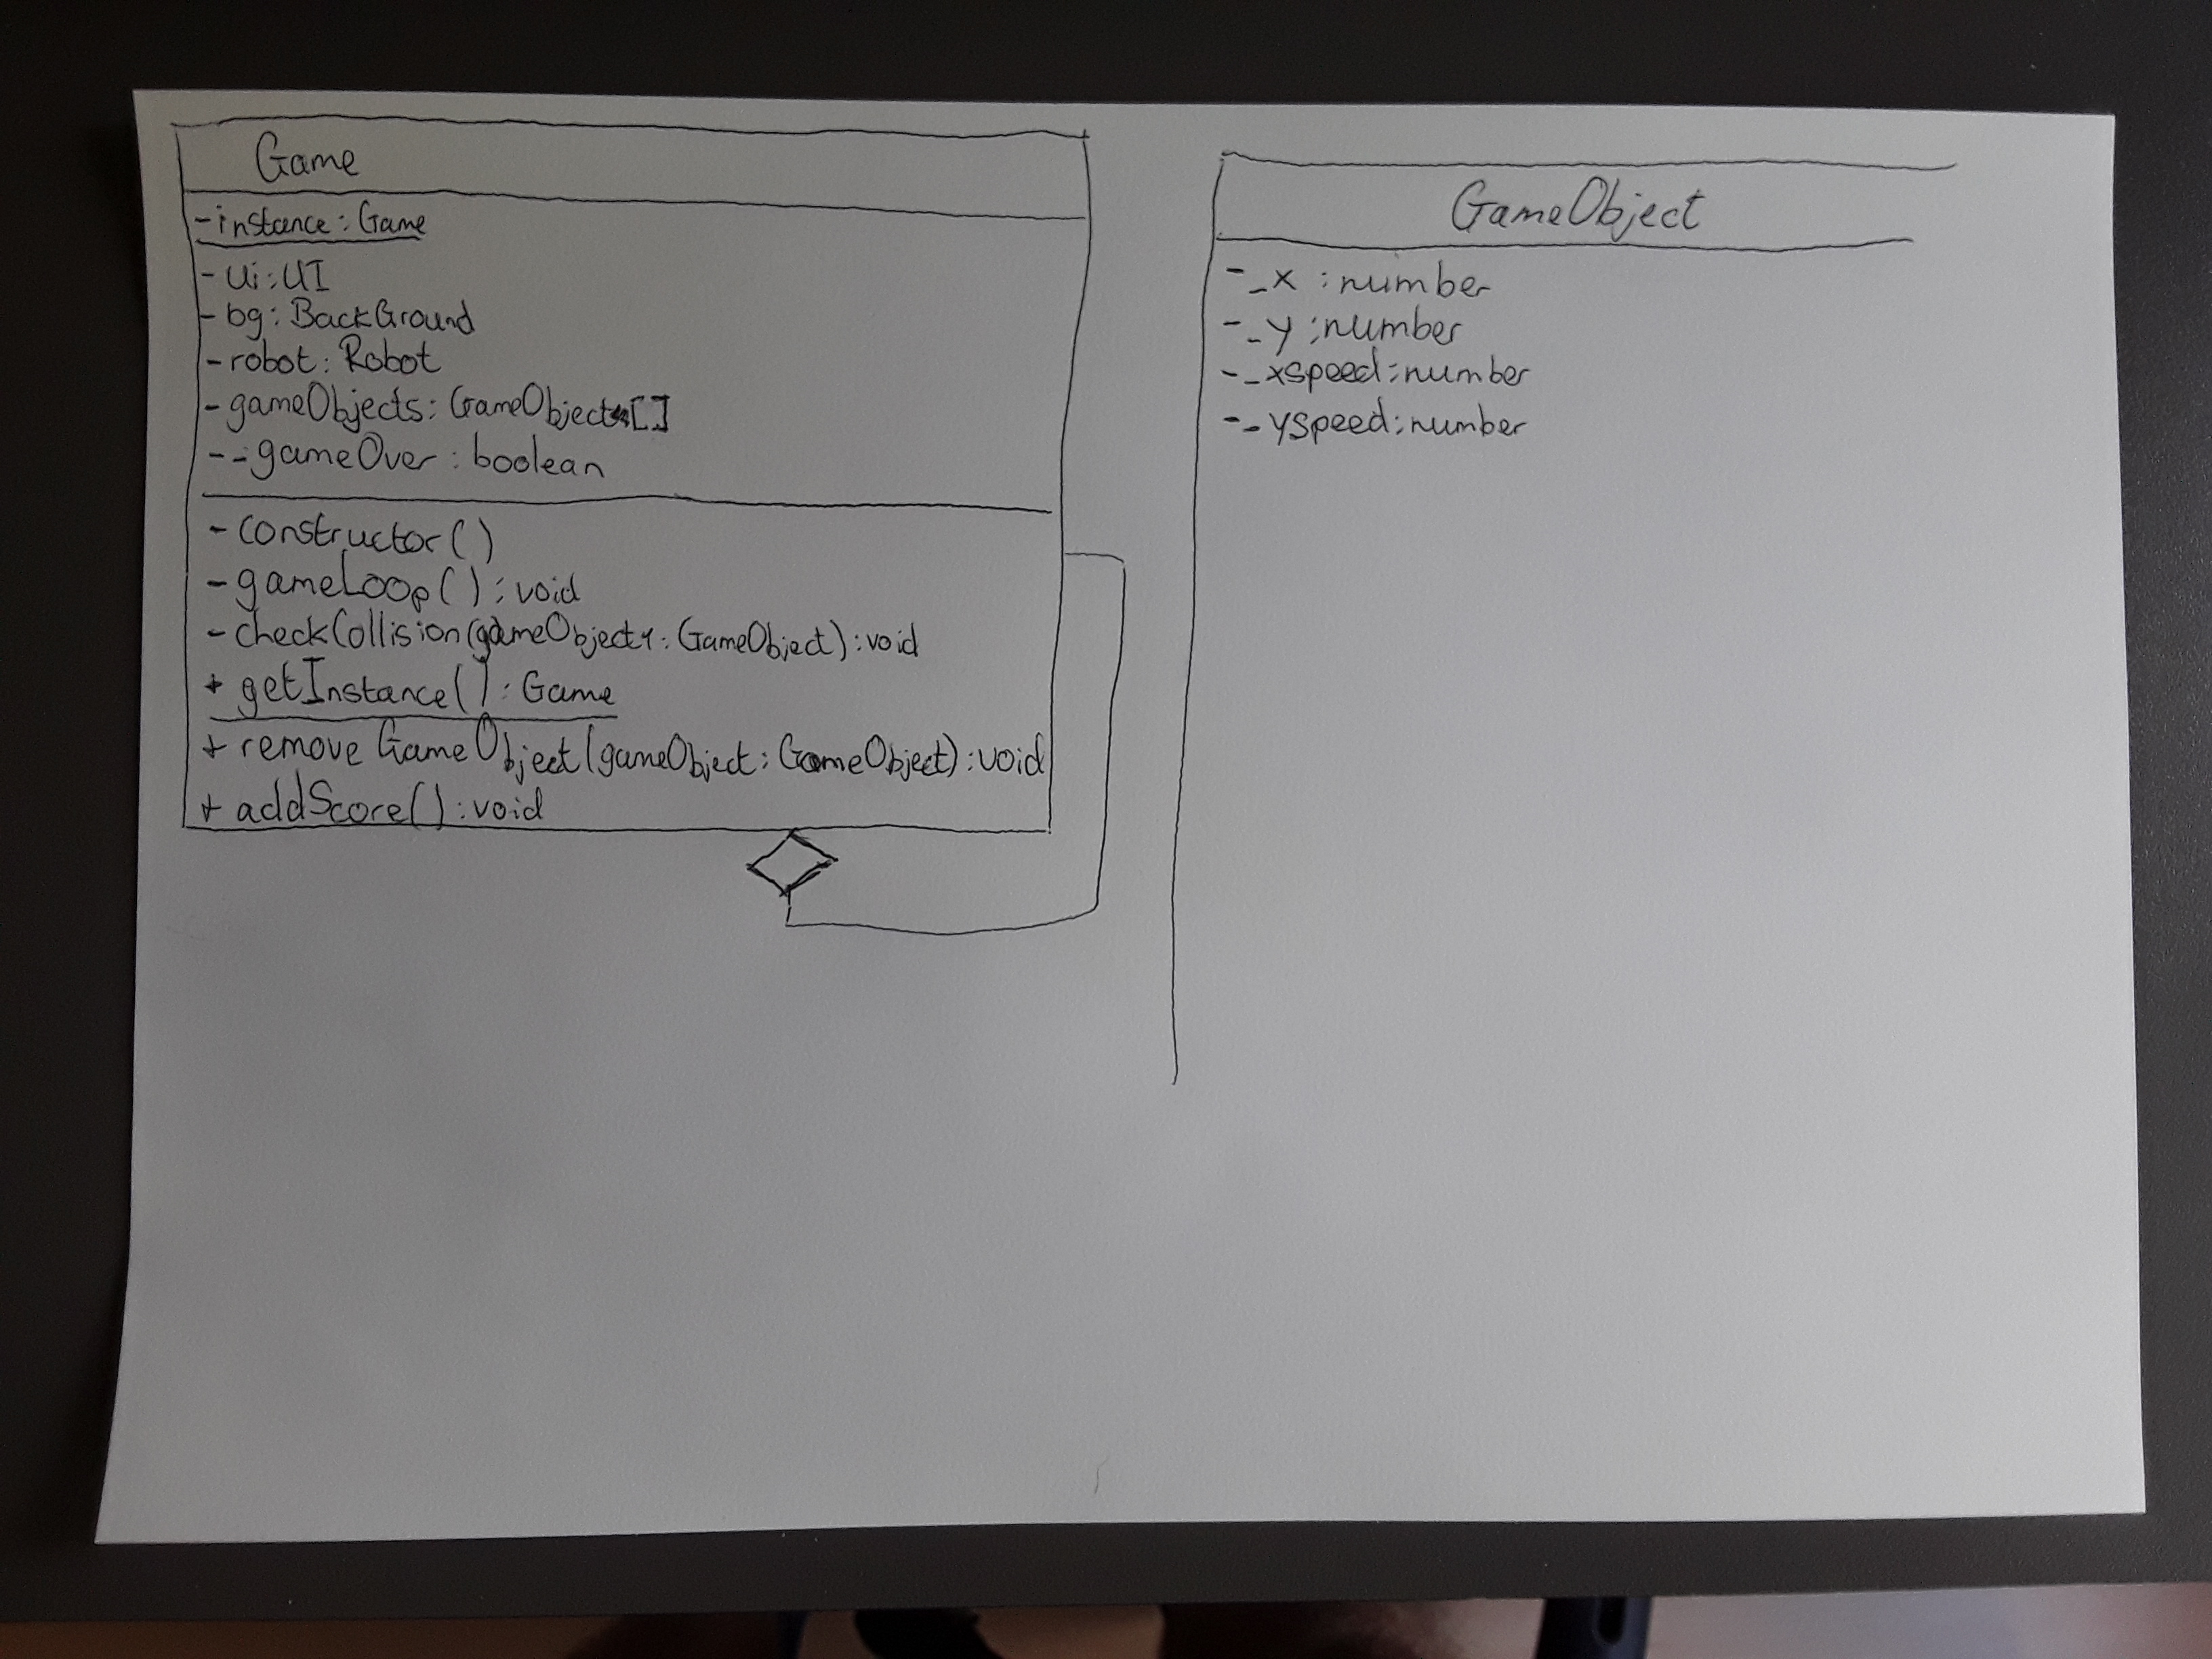 Game
- instance : Game
- ui : UI
- bg : BackGround
- robot : Robot
- gameObjects : GameObject[]
- _gameOver : boolean
- constructor()
- gameLoop() : void
- checkCollision(gameObject1 : GameObject) : void
+ getInstance() : Game
+ removeGameObject(gameObject : GameObject) : void
+ addScore() : void
GameObject
- _x : number
- _y : number
- _xspeed : number
- _yspeed : number